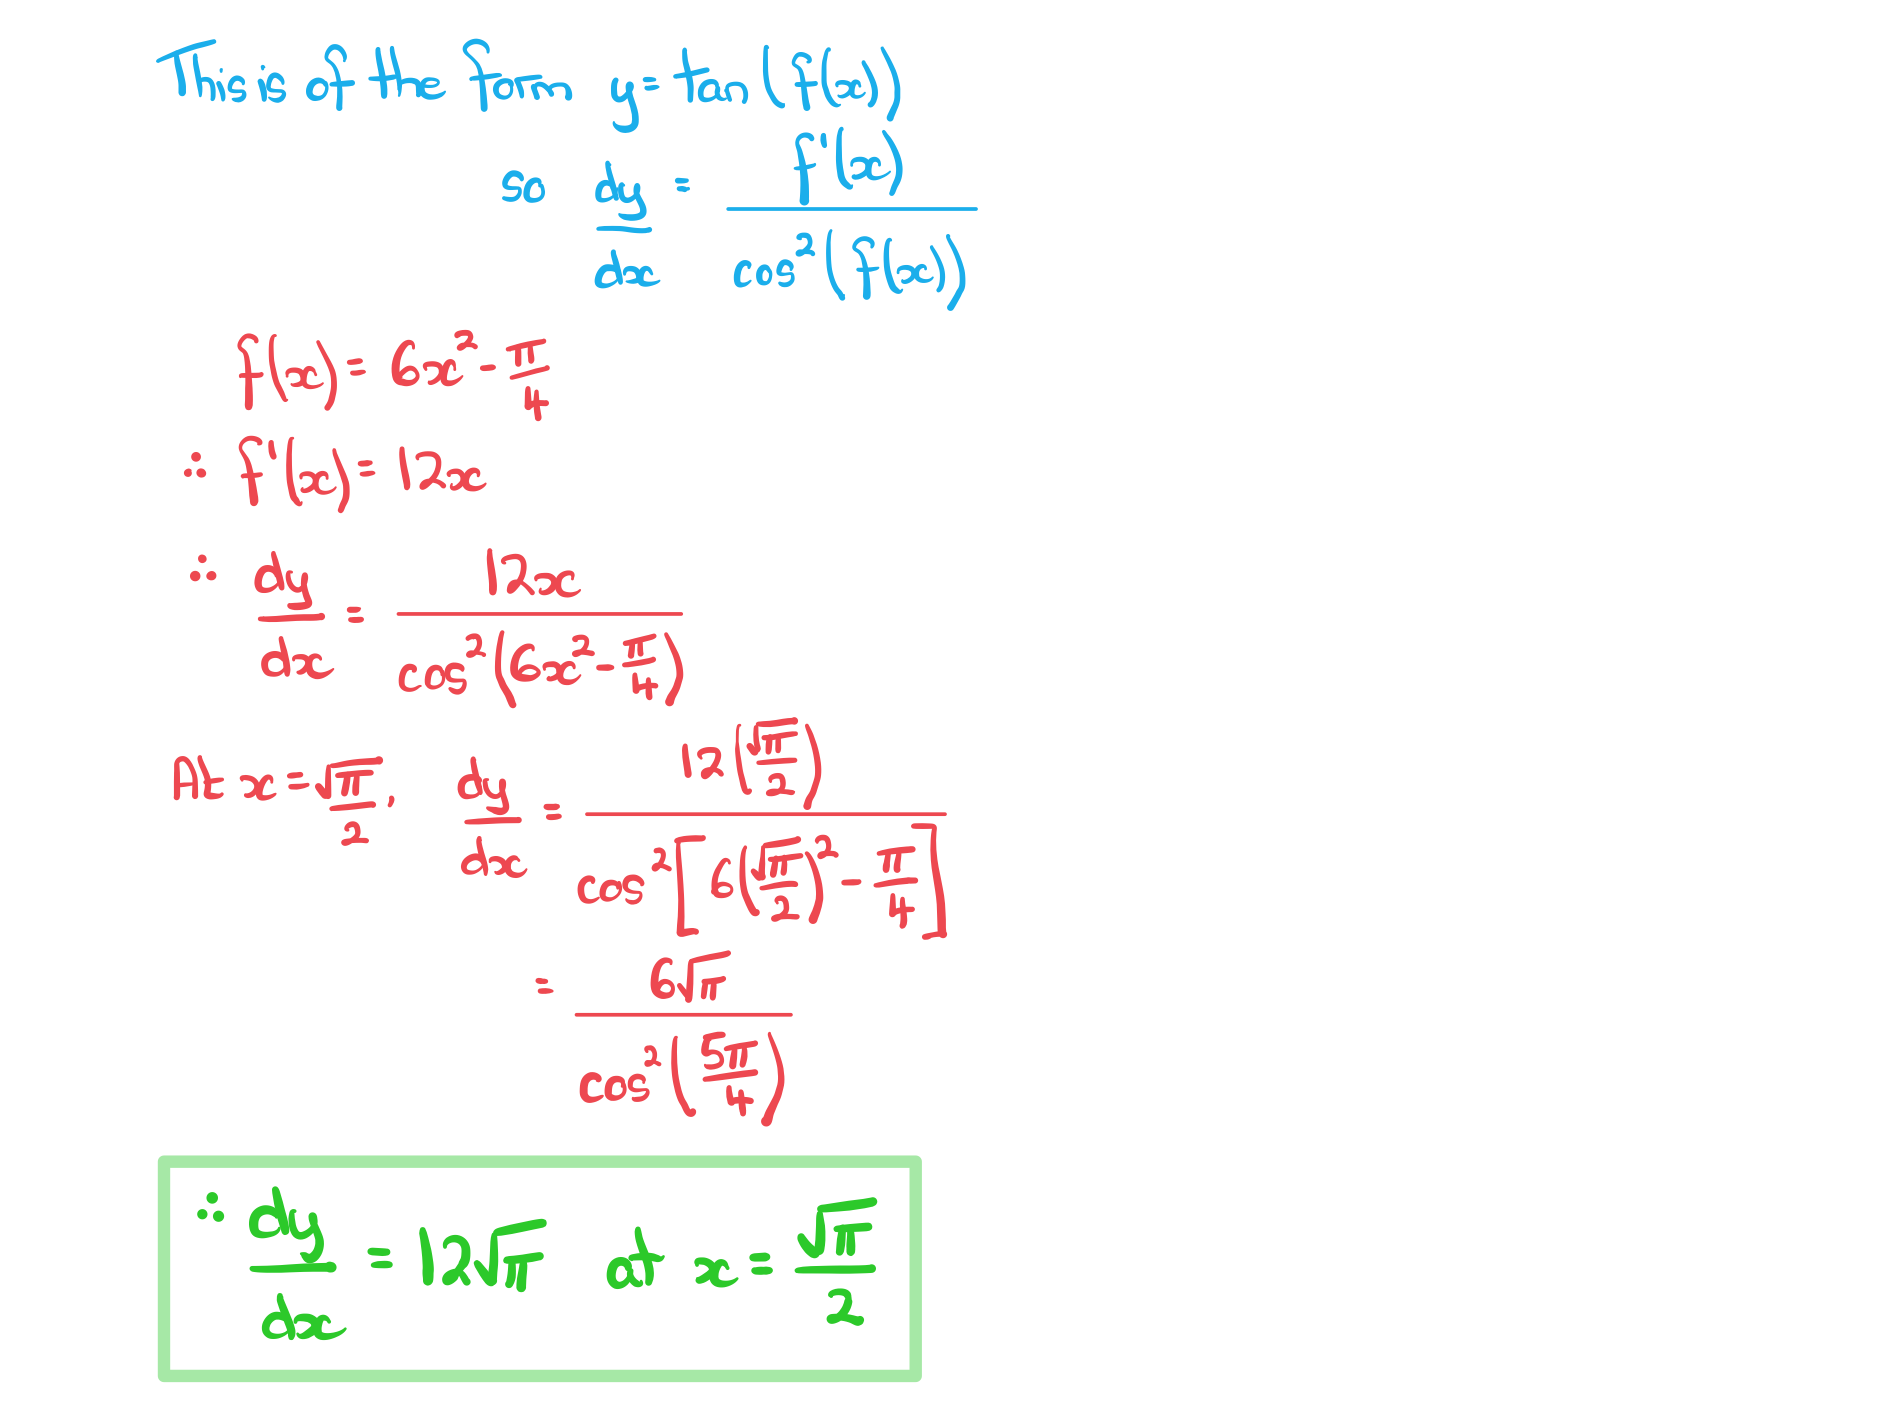 This is of the form y = tan(f(x))
so dy/dx = f'(x)/cos²(f(x))
f(x) = 6x² - π/4
∴ f'(x) = 12x
∴ dy/dx = 12x/cos²(6x² - π/4)
At x = √π/2, dy/dx = 12(√π/2)/cos²[6(√π/2)² - π/4]
= 6√π/cos²(5π/4)
∴ dy/dx = 12√π at x = √π/2